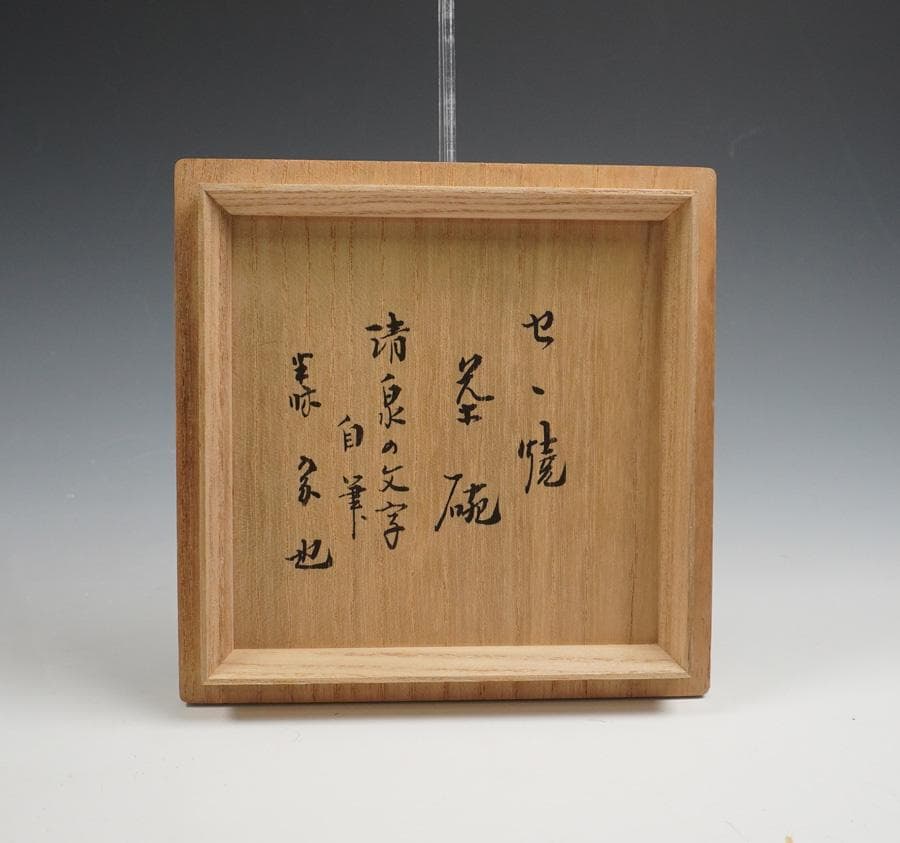 セヽ焼
茶碗
清泉の文字
自筆
也